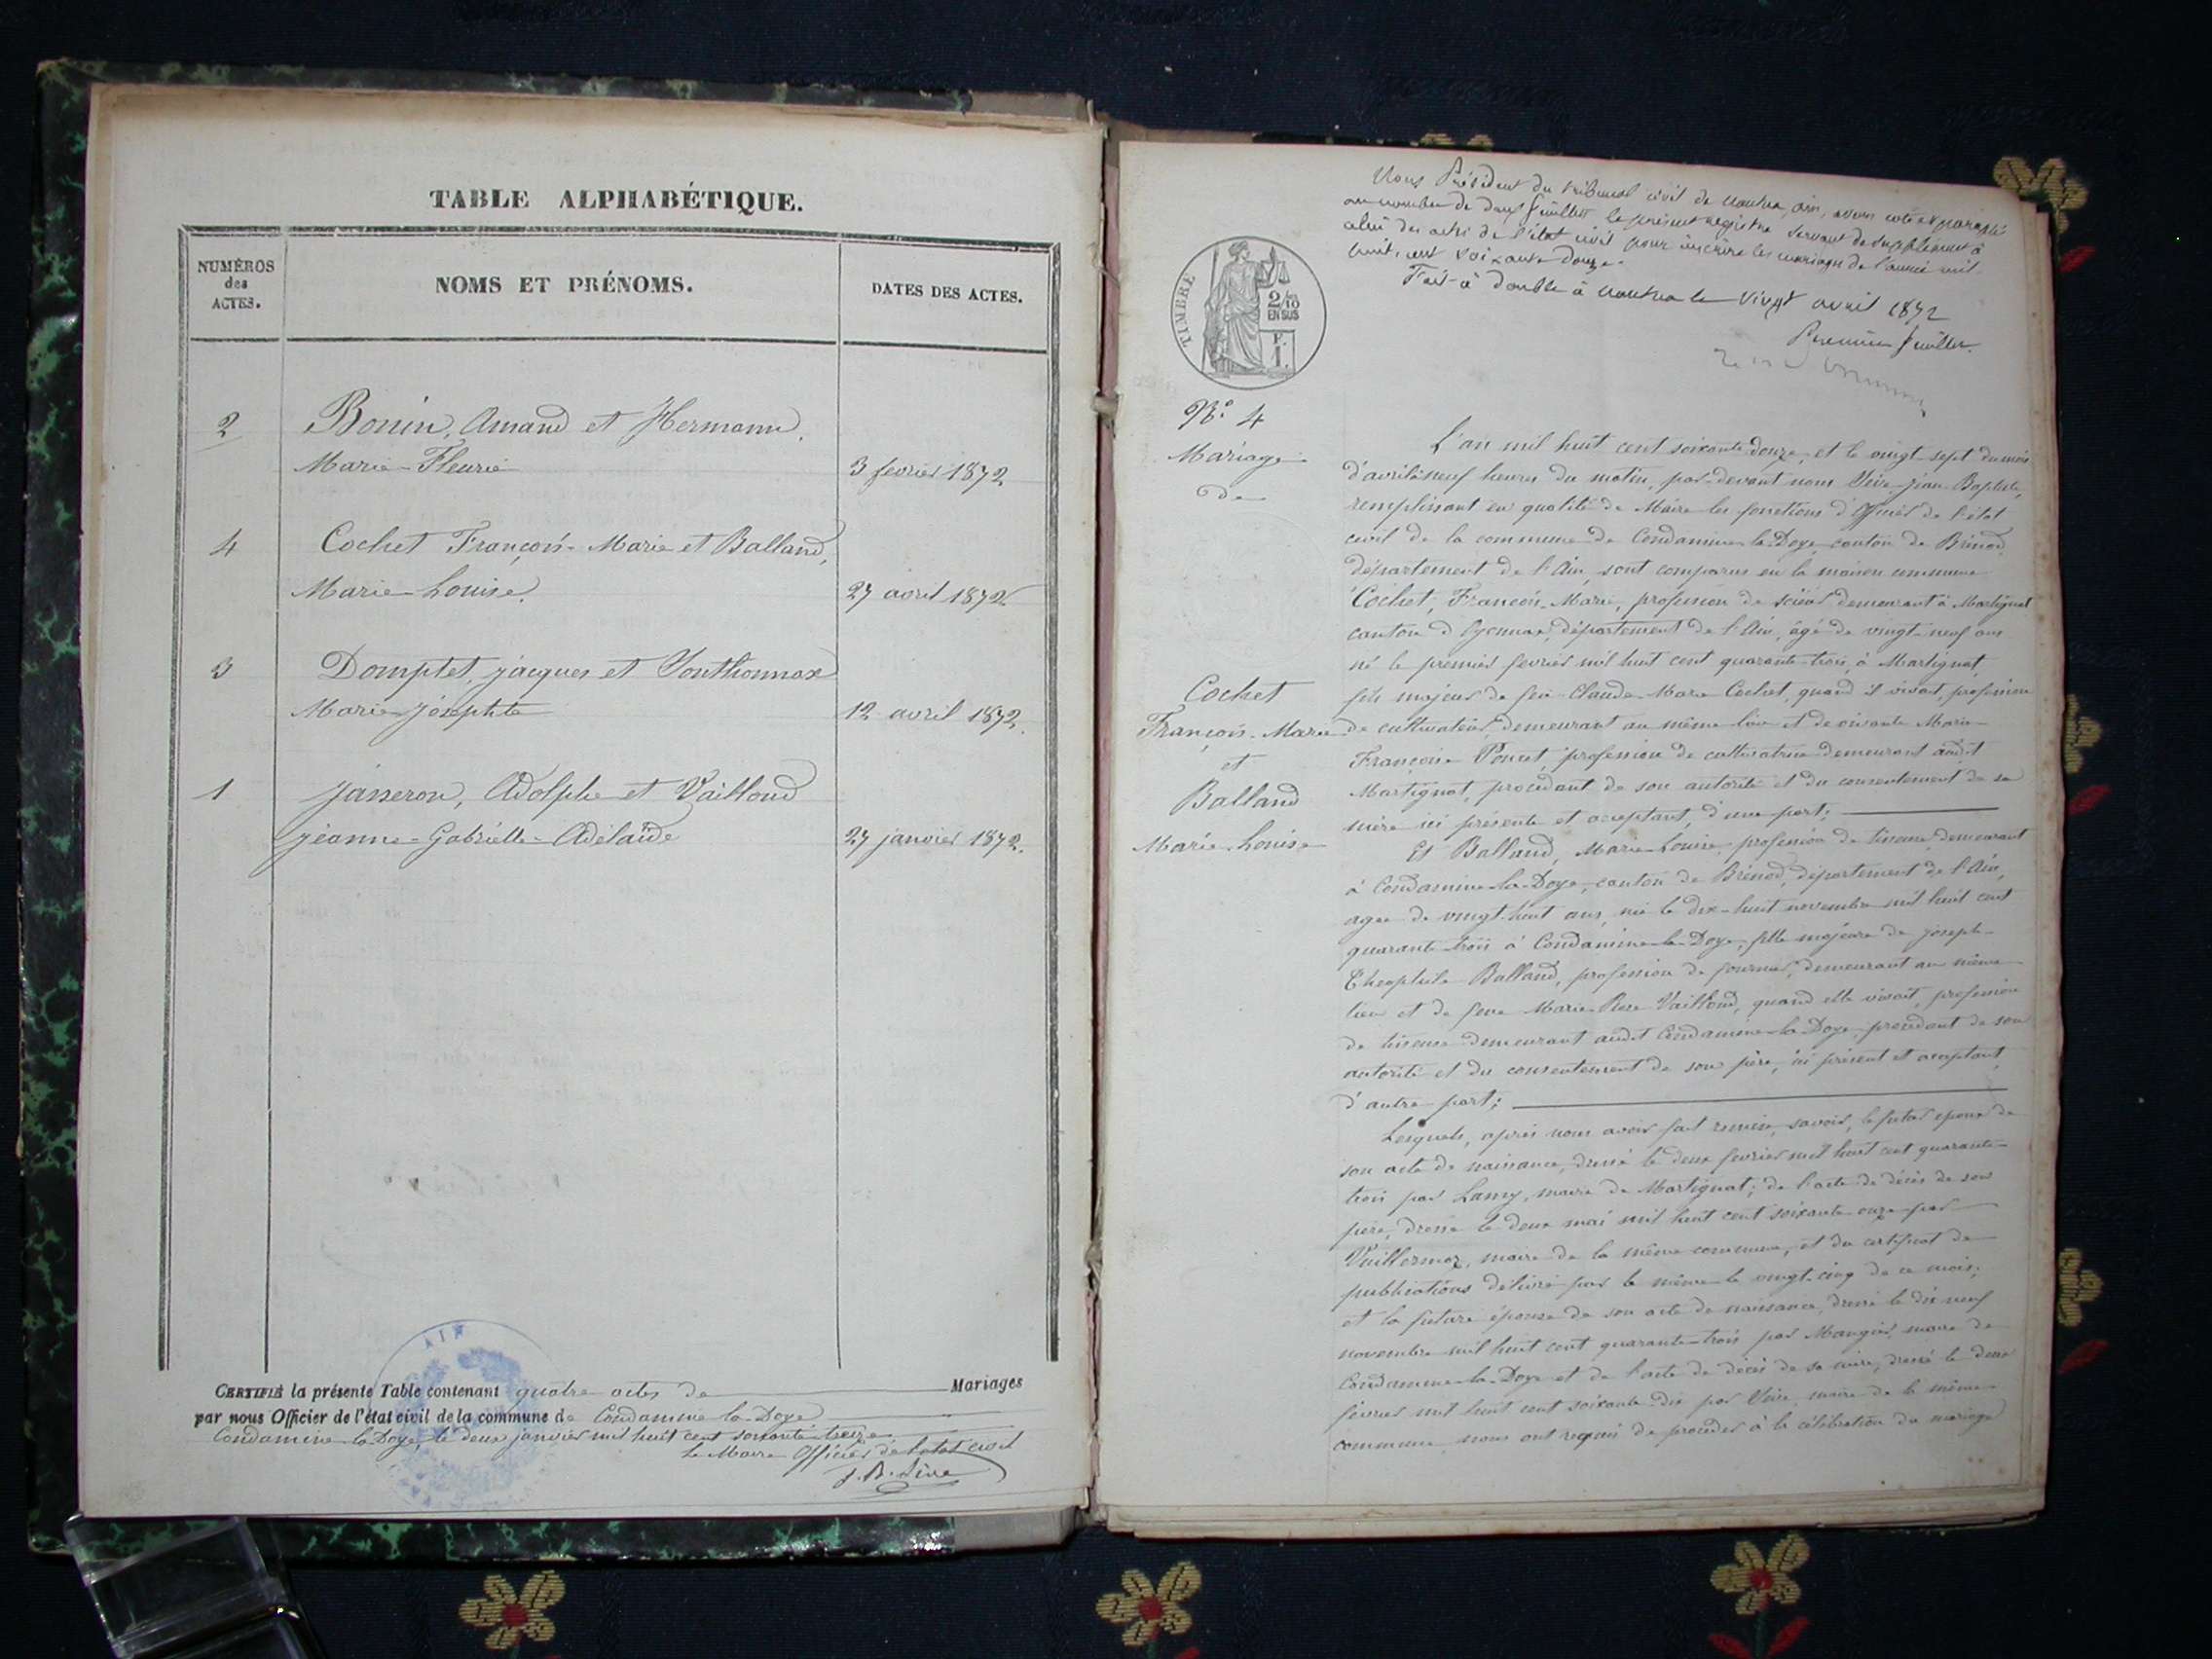 TABLE ALPHABÉTIQUE.
NUMÉROS
des
ACTES.
NOMS ET PRÉNOMS.
DATES DES ACTES.
2 Bonin, Amand et Hermann,
Marie-Fleurie 3 fevrier 1872
4 Cochet François-Marie et Balland,
Marie-Louise. 27 avril 1872
3 Domptet, jacques et Jonthonnax
Marie-josephte 12 avril 1872.
1 Janeron, Adolphe et Vailloud
jeanne-Gabrielle-Adélaïde 27 janvier 1872.
AIN
CERTIFIÉ la présente Table contenant quatre actes de Mariages
par nous Officier de l'état civil de la commune de Condamine la Doye
Condamine la Doye, le deux janvier mil huit cent soixante treize.
Le Maire Officier de l'etat civil
Nous Président du tribunal civil de Nantua, Ain, avons coté et paraphé
au nombre de deux feuillets le présent registre servant de supplément à
celui des actes de l'état civil pour inscrire les mariages de l'année mil
huit cent soixante douze.
Fait à double à Nantua le vingt avril 1872
Premier feuillet.
TIMBRE
2/10
EN SUS
F.
1.
N.° 4
Mariage
de
Cochet
François-Marie
et
Balland
Marie-Louise
L'an mil huit cent soixante douze, et le vingt sept du mois
d'avril à neuf heures du matin, par-devant nous jean-Baptiste,
remplissant en qualité de Maire les fonctions d'Officier de l'état
civil de la commune de Condamine-la-Doye, canton de Brénod
département de l'Ain, sont comparus en la maison commune
Cochet, François-Marie, profession de scieur demeurant à Martignat
canton d'Oyonnax, département de l'Ain, âgé de vingt-neuf ans
né le premier fevrier mil huit cent quarante-trois, à Martignat,
fils majeur de feu Claude-Marie Cochet, quand il vivait, profession
de cultivateur, demeurant au même lieu et de vivante Marie-
Françoise Poncet, profession de cultivatrice demeurant audit
Martignat, procédant de son autorité et du consentement de sa
mère ici présente et acceptant, d'une part;
Et Balland, Marie-Louise, profession de tiseuse, demeurant
à Condamine-la-Doye, canton de Brénod, département de l'Ain,
agée de vingt-huit ans, née le dix-huit novembre mil huit cent
quarante-trois à Condamine-la-Doye, fille majeure de joseph-
Théophile Balland, profession de fournier, demeurant au même
lieu et de feue Marie-Rose Vailloud, quand elle vivait, profession
de tiseuse demeurant audit Condamine-la-Doye, procédant de son
autorité et du consentement de son père, ici présent et acceptant,
d'autre part;
Lesquels, après nous avoir fait remise, savoir, le futur époux de
son acte de naissance, dressé le deux fevrier mil huit cent quarante-
trois par Lamy, maire de Martignat; de l'acte de décès de son
père, dressé le deux mai mil huit cent soixante onze par
Vuillermoz, maire de la même commune, et du certificat de
publications délivré par le même le vingt-cinq de ce mois;
et la future épouse de son acte de naissance, dressé le dix neuf
novembre mil huit cent quarante-trois par Maugier, maire de
Condamine-la-Doye et de l'acte de décès de sa mère, dressé le deux
février mil huit cent soixante-dix par maire de la même
commune, nous ont requis de procéder à la célébration du mariage